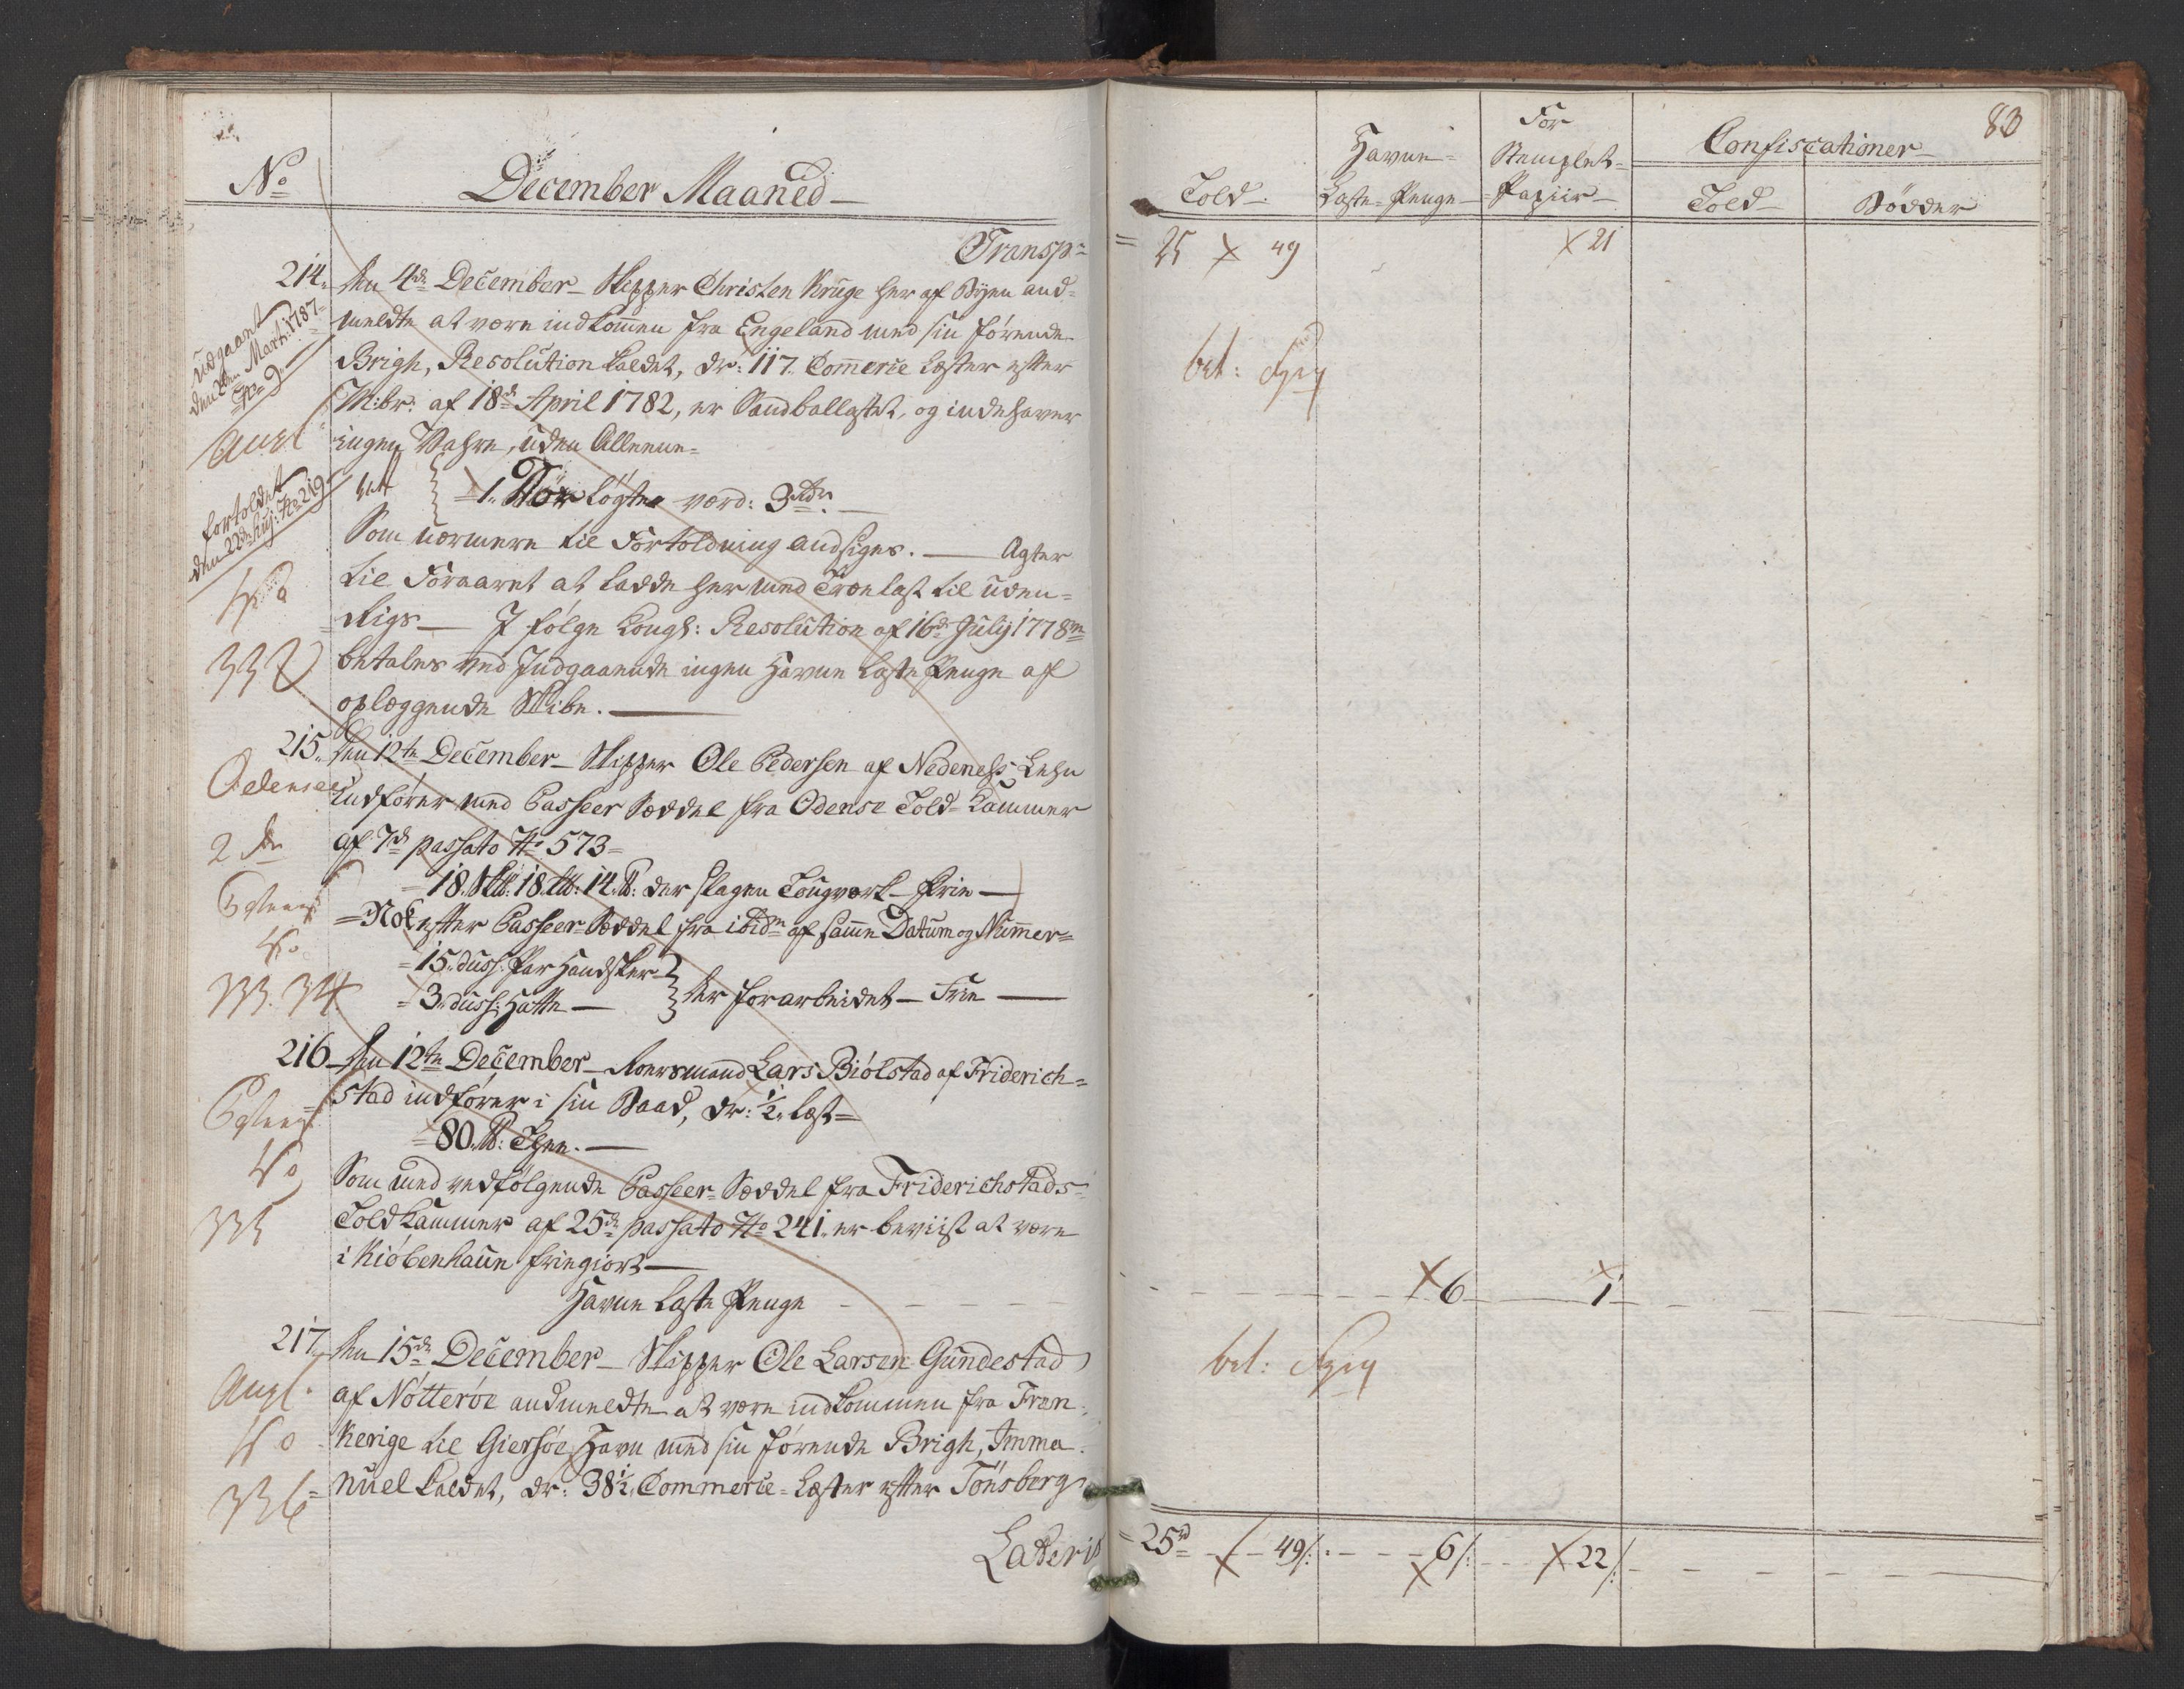 No
December Maaned
Transp:
214. Den 4de December Skipper Christen Kruge her af Byen and=
meldte at være indkommen fra Engeland med sin førende
Brigh, Resolution kaldet, dr: 117 Commerce Læster efter
M:br: af 18de April 1782, er Sandballastet, og indehaver
ingen Vahre, uden Alleene=
1. Dør Løgte værd: 3 rdr.
Som nærmere til Fortoldning andsiges. — Agter
til Foraaret at ladde her med Trælast til uden=
Rigs — J følge Kongl: Resolution af 16de July 1778
betales ved Indgaaende ingen Havne Laste Penge af
oplæggende Skibe.
Udgaaet
den Marti: 1787
No 9
Angl
fortoldet
den 22de huj: No 219
No
332
215. Den 12te December Skipper Ole Pedersen af Nedenes Lehn
indfører med Passeer Sæddel fra Odense Told-Kammer
af 7de passato No 573=
18. Sk℔: 18. L℔: 14. ℔: der slagen Tougværk — frie
Nok efter Passeer-Sæddel fra ibidm af samme Datum og Nummer=
15. duss: Par Handsker
3. duss: Hatte
der forarbeidet — Frie
Odense
2 de
No
333. 34.
216 Den 12te December Roersmand Lars Biólstad af Friderich=
stad indfører i sin Baad, dr: ½ Læst=
80. ℔: Thee.
Som med vedfølgende Passeer-Sæddel fra Friderichstads
Told Kammer af 25de passato No 241. er beviist at være
i Kiöbenhaun friegiort
Havne Laste Penge
No
335
217. Den 15de December Skipper Ole Larsen Gundestad
af Nötteröe andmeldte at være indkommen fra Fran=
kerige til Giersøe Havn med sin førende Brigh, Imma=
nuel kaldet, dr: 38½ Commerce-Læster efter Tönsberg
Angl.
No
336
Lateris
83
Told
Havne=
Laste-Penge
For
Stemplet-
Papiir
Confiscationer
Told
Bödder
25 49 21
bet:
6 1
bet:
25rd 49/: 6/: 22/: